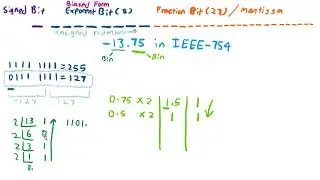 Signed Bit Biased Form Exponent Bit (8) Fraction Bit (23) / mantissa
unsigned number
-13.75 in IEEE-754
Bin Bin
1111 1111 = 255
0111 1111 = 127
-127 127
0.75 × 2 1.5 1
0.5 × 2 1 1
2 13 1 1101.
2 6 0
2 3 1
2 1 1